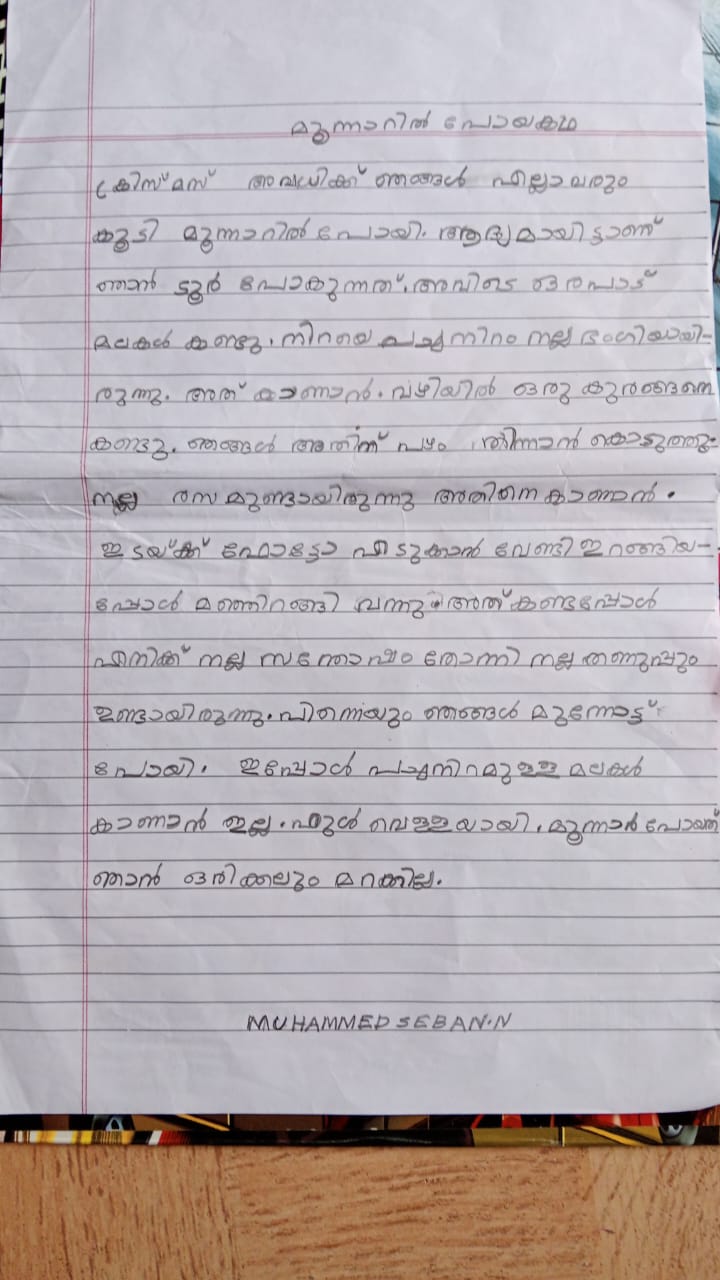 മൂന്നാറിൽ പോയകഥ
ക്രിസ്മസ് അവധിക്ക് ഞങ്ങൾ എല്ലാവരും
കൂടി മൂന്നാറിൽ പോയി. ആദ്യമായിട്ടാണ്
ഞാൻ ടൂർ പോകുന്നത്. അവിടെ ഒരുപാട്
മലകൾ കണ്ടു. നിറയെ പച്ചനിറം നല്ല ഭംഗിയായി-
രുന്നു. അത് കാണാൻ. വഴിയിൽ ഒരു കുരങ്ങനെ
കണ്ടു. ഞങ്ങൾ അതിന് പഴം തിന്നാൻ കൊടുത്തു.
നല്ല രസമുണ്ടായിരുന്നു അതിനെ കാണാൻ.
ഇടയ്ക്ക് ഫോട്ടോ എടുക്കാൻ വേണ്ടി ഇറങ്ങിയ-
പ്പോൾ മഞ്ഞിറങ്ങി വന്നു. അത് കണ്ടപ്പോൾ
എനിക്ക് നല്ല സന്തോഷം തോന്നി നല്ല തണുപ്പും
ഉണ്ടായിരുന്നു. പിന്നെയും ഞങ്ങൾ മുന്നോട്ട്
പോയി. ഇപ്പോൾ പച്ചനിറമുള്ള മലകൾ
കാണാൻ ഇല്ല. ഫുൾ വെള്ളയായി. മൂന്നാർ പോയത്
ഞാൻ ഒരിക്കലും മറക്കില്ല.
MUHAMMED SEBAN.N